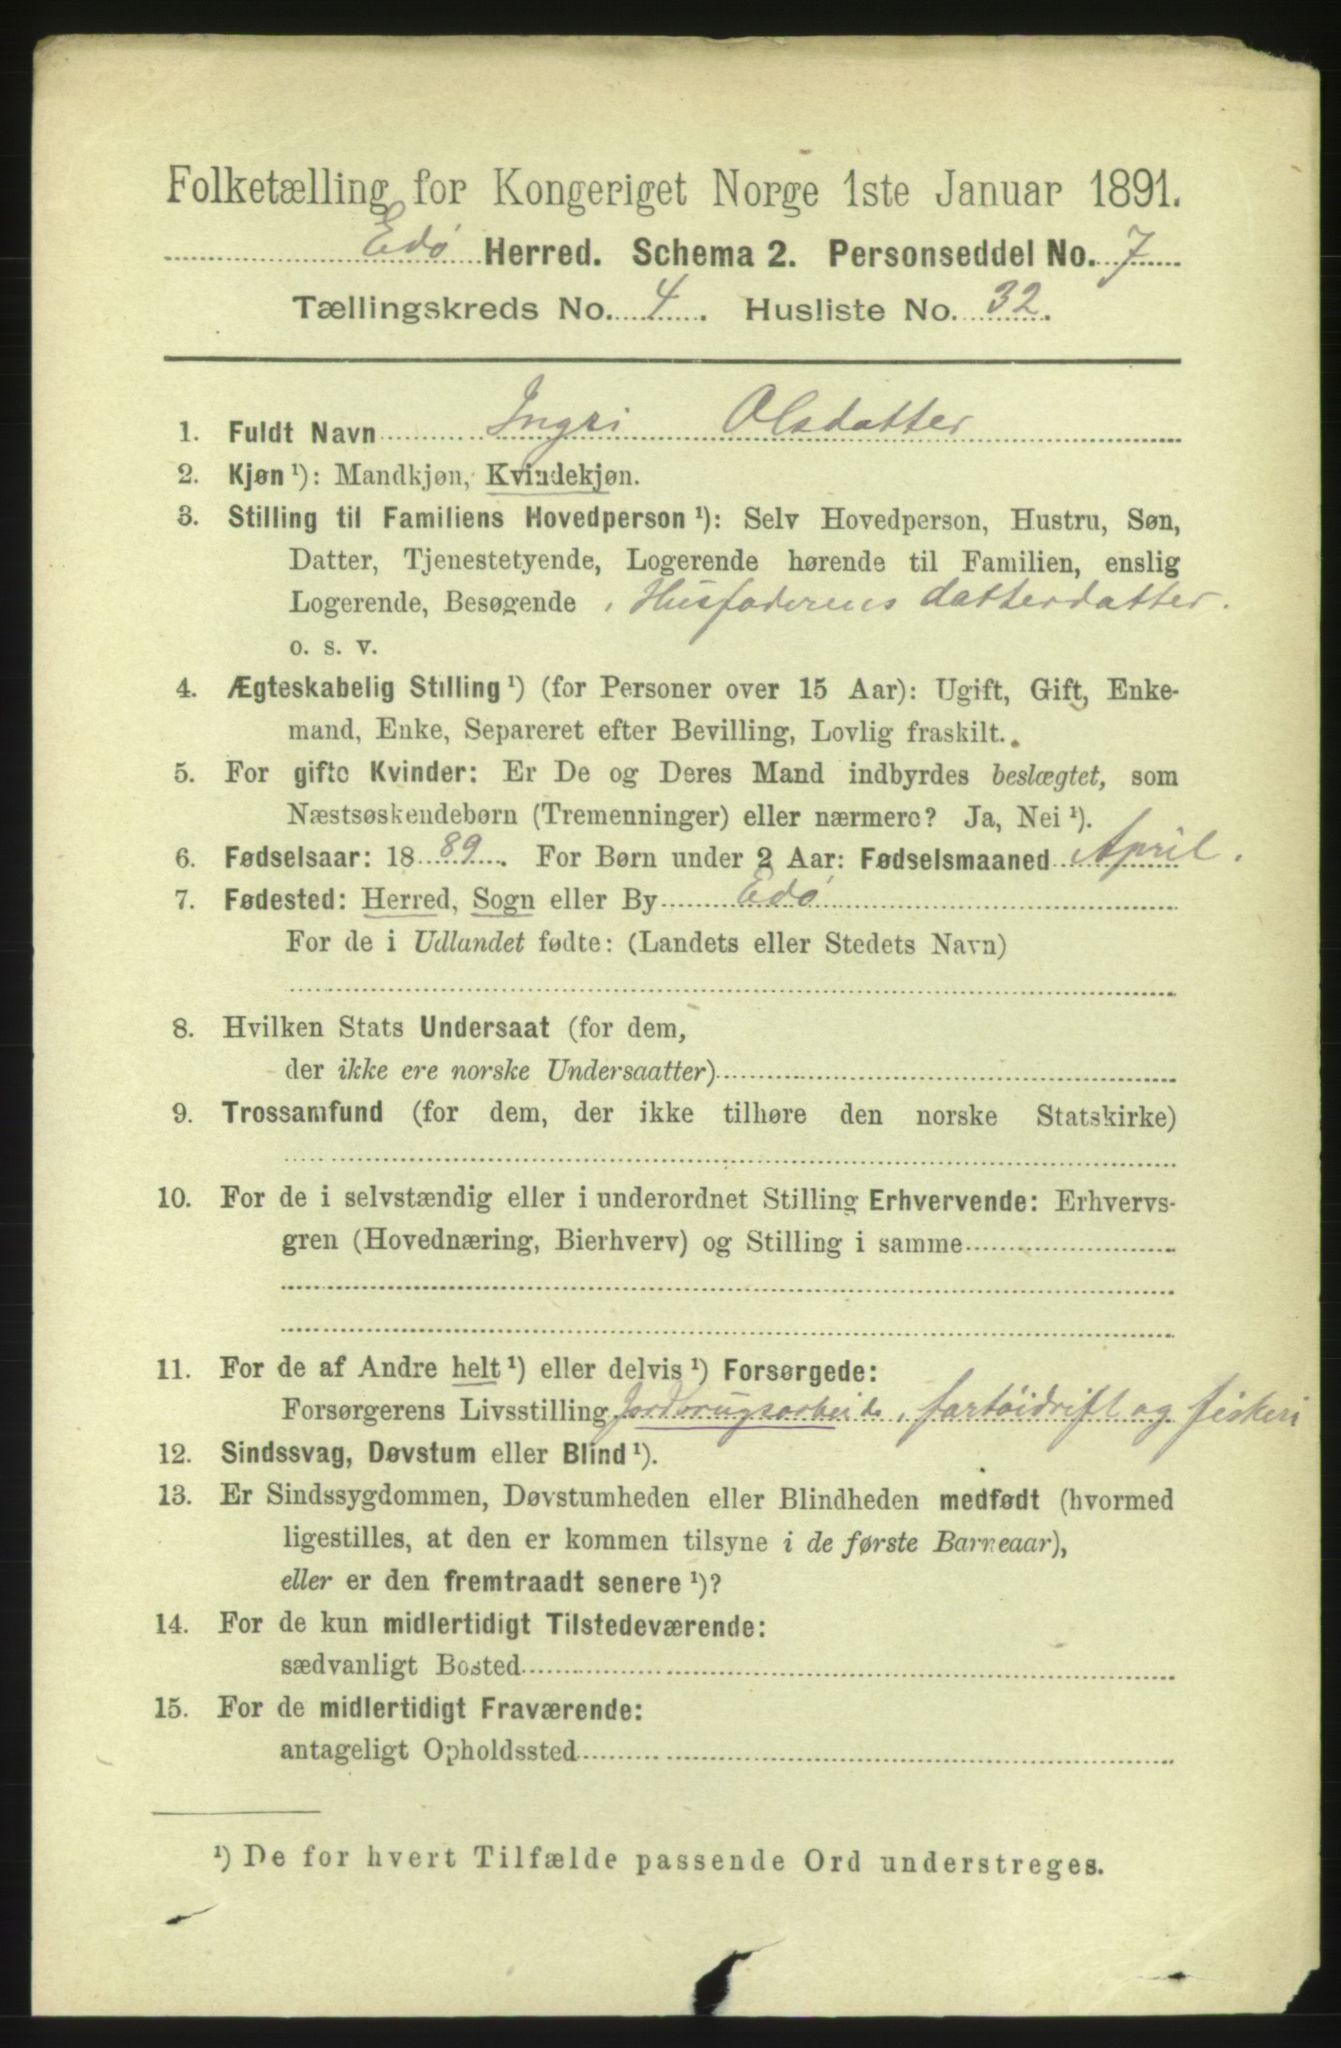 Folketælling for Kongeriget Norge 1ste Januar 1891.
Edø Herred. Schema 2. Personseddel No. 7
Tællingskreds No. 4. Husliste No. 32.
1. Fuldt Navn Ingri Olsdatter
2. Kjøn ¹): Mandkjøn, Kvindekjøn.
3. Stilling til Familiens Hovedperson ¹): Selv Hovedperson, Hustru, Søn,
Datter, Tjenestetyende, Logerende hørende til Familien, enslig
Logerende, Besøgende, Husfaderens datterdatter.
o. s. v.
4. Ægteskabelig Stilling ¹) (for Personer over 15 Aar): Ugift, Gift, Enke-
mand, Enke, Separeret efter Bevilling, Lovlig fraskilt.
5. For gifte Kvinder: Er De og Deres Mand indbyrdes beslægtet, som
Næstsøskendebørn (Tremenninger) eller nærmere? Ja, Nei ¹).
6. Fødselsaar: 1889. For Børn under 2 Aar: Fødselsmaaned April.
7. Fødested: Herred, Sogn eller By Edø
For de i Udlandet fødte: (Landets eller Stedets Navn)
8. Hvilken Stats Undersaat (for dem,
der ikke ere norske Undersaatter)
9. Trossamfund (for dem, der ikke tilhøre den norske Statskirke)
10. For de i selvstændig eller i underordnet Stilling Erhvervende: Erhvervs-
gren (Hovednæring, Bierhverv) og Stilling i samme
11. For de af Andre helt ¹) eller delvis ¹) Forsørgede:
Forsørgerens Livsstilling Jordbrugsarbeide, fartøidrift og fiskeri
12. Sindssvag, Døvstum eller Blind ¹).
13. Er Sindssygdommen, Døvstumheden eller Blindheden medfødt (hvormed
ligestilles, at den er kommen tilsyne i de første Barneaar),
eller er den fremtraadt senere ¹)?
14. For de kun midlertidigt Tilstedeværende:
sædvanligt Bosted
15. For de midlertidigt Fraværende:
antageligt Opholdssted
¹) De for hvert Tilfælde passende Ord understreges.